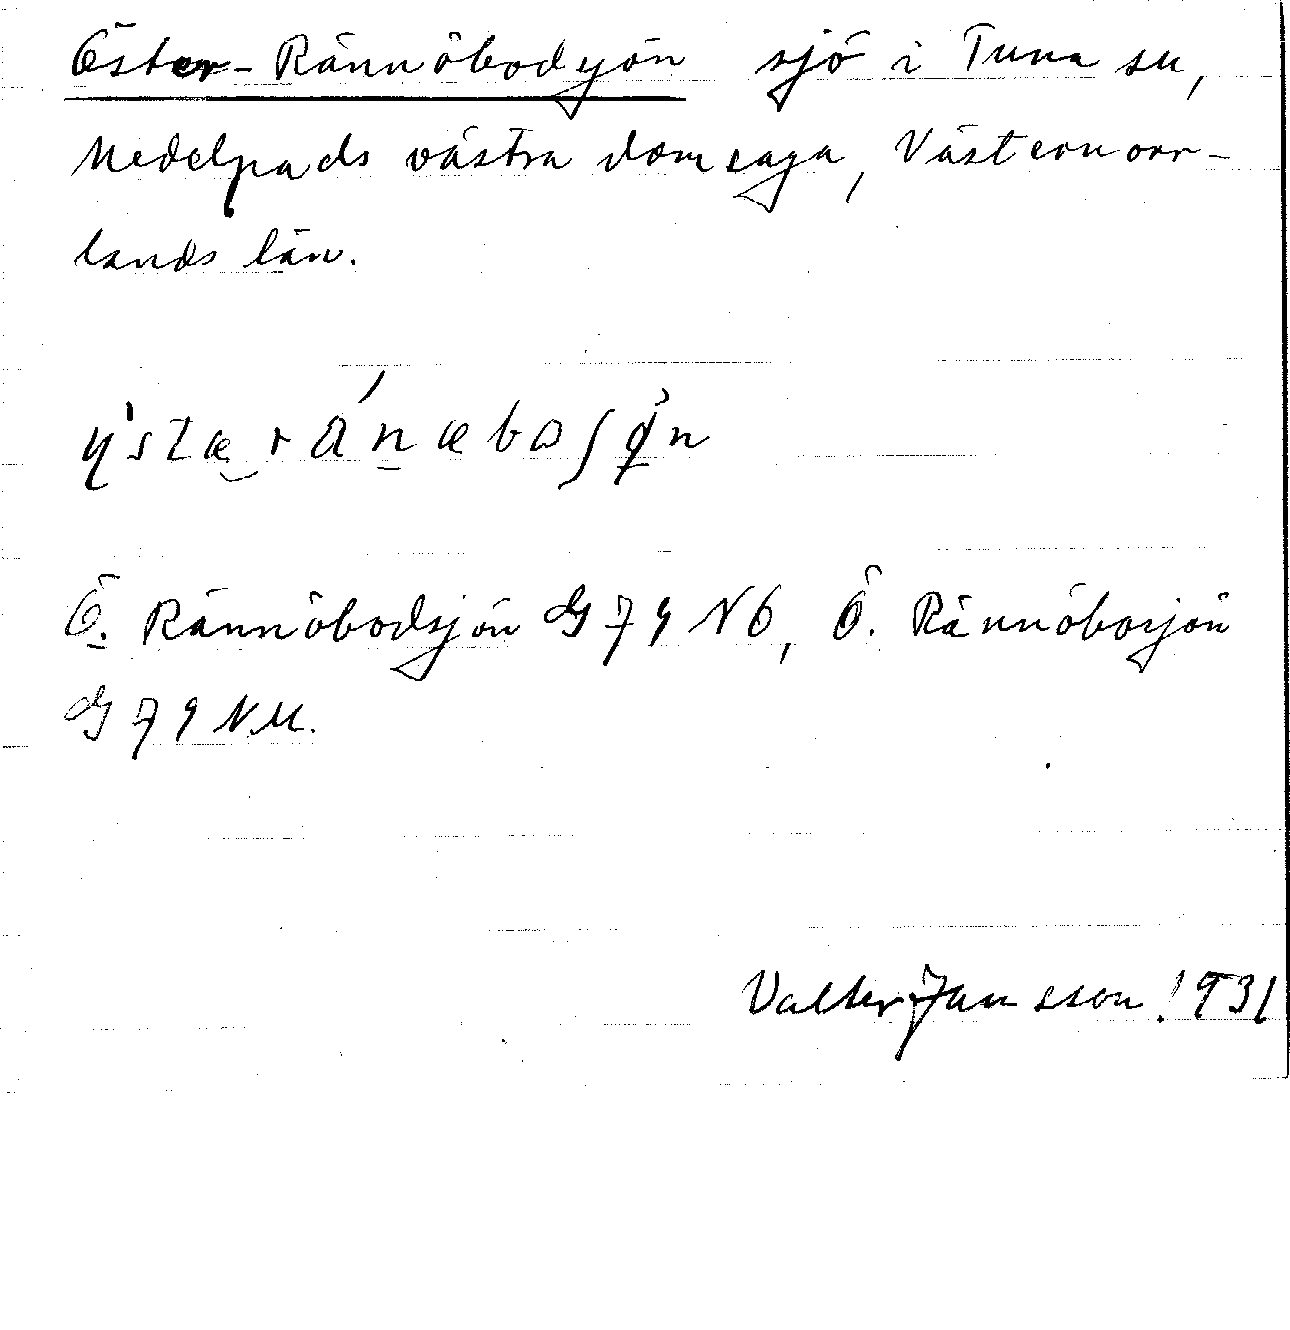 Öster-Rännöbodsjön sjö i Tuna sn,
Medelpads västra domsaga, Västernorr-
lands län.
Ö. Rännöbodsjön G 79 NÖ, Ö. Rännöbosjön
G 79 N.M.
Valter Jansson 1931